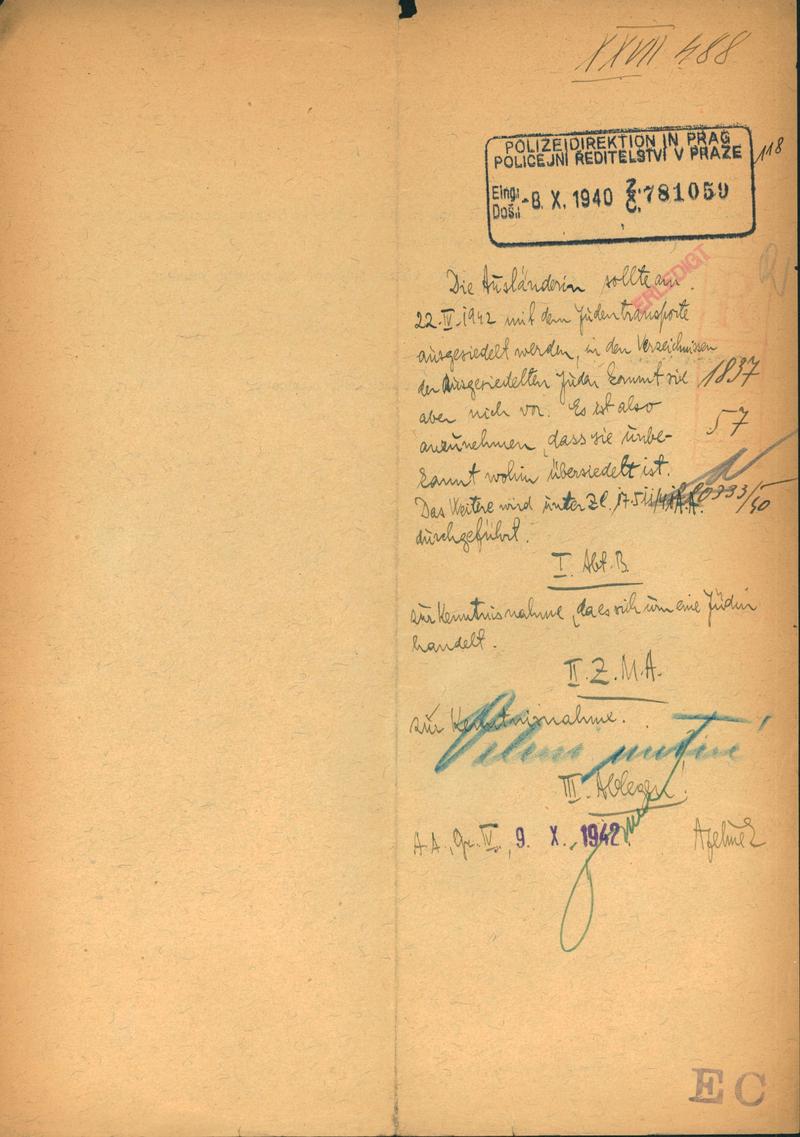 XXVII 488
POLIZEIDIREKTION IN PRAG
POLICEJNÍ ŘEDITELSTVÍ V PRAZE
118
Eing:
Doš.:
-8. X. 1940
Z.
Č.
781059
ERLEDIGT
Die Ausländerin sollte am
22.IV.1942 mit dem Judentransporte
ausgesiedelt werden, in den Verzeichnissen
der Ausgesiedelten Juden kommt sie
1837
aber nich vor. Es ist also
57
anzunehmen, dass sie unbe-
kannt wohin übersiedelt ist.
Das Weitere wird unter Zl.
durchgeführt.
I. Abt. B.
zur Kenntnisnahme, da es sich um eine Jüdin
handelt.
II. Z.M.A.
zur Kenntnisnahme.
III. Ablegen!
A.A., Gr. IV., 9. X. 1942.
EC